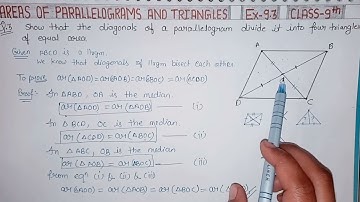 AREAS OF PARALLELOGRAMS AND TRIANGLES | Ex-9.3 | CLASS-9th
Q.3 Show that the diagonals of a parallelogram divide it into four triangles
of equal area
Given ABCD is a 11gm.
we know that diagonals of 11gm bisect each other
To prove ar(△AOD) = ar(△AOB) = ar(△BOC) = ar(△COD)
Proof:- In △ABD, OA is the median.
ar(△AOD) = ar(△AOB) — (i)
In △BCD, OC is the median.
ar(△COD) = ar(△BOC) — (ii)
In △ABC, OB is the median
ar(△AOB) = ar(△BOC) — (iii)
from eqn (i) & (ii) & (iii)
ar(△AOD) = ar(△AOB) = ar(△BOC) = ar(△
A
B
D
C